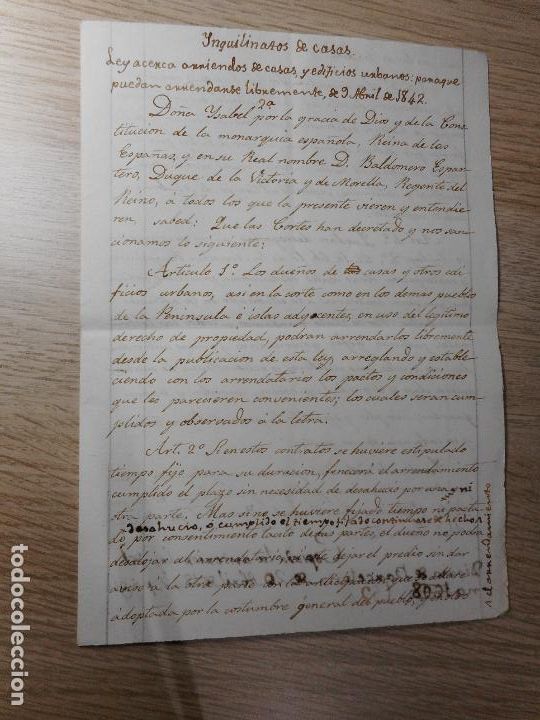 Ynquilinatos de casas.
Ley acerca arriendos de casas, y edificios urbanos: para que
puedan arrendarse libremente, de 9 Abril de 1842.
Doña Ysabel 2ª por la gracia de Dios y de la Cons
titucion de la monarquia española, Reina de las
Españas, y en su Real nombre D. Baldomero Espar
tero, Duque de la Victoria y de Morella, Regente del
Reino, a todos los que la presente vieren y entendie
ren, sabed: Que las Cortes han decretado y nos san
cionamos lo siguiente:
Articulo 1º. Los dueños de casas y otros edi
ficios urbanos, asi en la corte como en los demas pueblos
de la Peninsula e islas adyacentes, en uso del legitimo
derecho de propiedad, podran arrendarlos libremente
desde la publicacion de esta ley, arreglando y estable
ciendo con los arrendatarios los pactos y condiciones
que les parecieren convenientes; los cuales seran cum
plidos y observados à la letra.
Art. 2º Si en estos contratos se huviere estipulado
tiempo fijo para su duracion, fenecerá el arrendamiento
cumplido el plazo sin necesidad de desahucio por una y ni
otra parte. Mas si no se huviere fijado tiempo ni pacta
desahucio, o cumplido el tiempo fijado continuare de hecho
do por consentimiento tacito de las partes, el dueño no podrá
desalojar al arrendatario, ni este dejar el predio sin dar
aviso à la otra parte con la anticipacion que se hallare
adoptada por la costumbre general del pueblo, y
el arrendamiento
todocoleccion.net